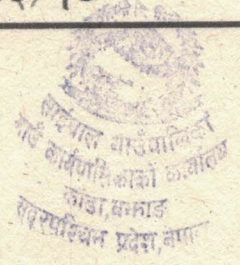 साइपाल गाउँपालिका
गाउँ कार्यपालिकाको कार्यालय
काँडा, बझाङ
सुदूरपश्चिम प्रदेश, नेपाल